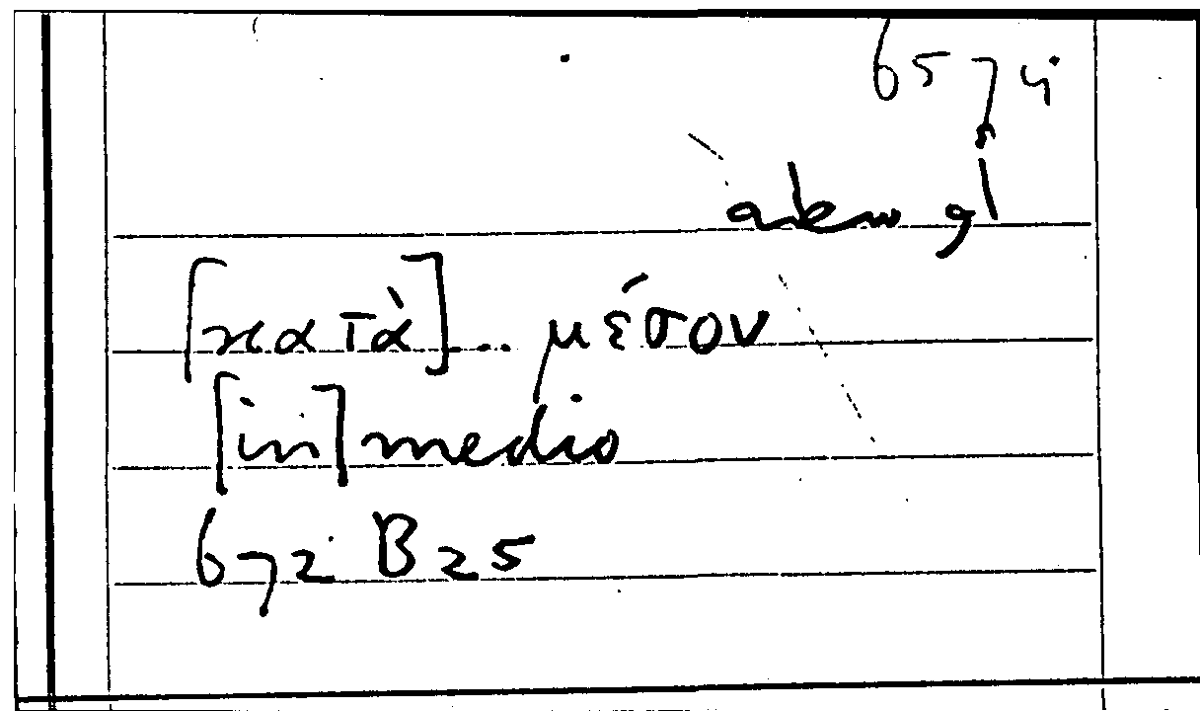 6574
[κατὰ]... μέσον
[in] medio
672 B 25